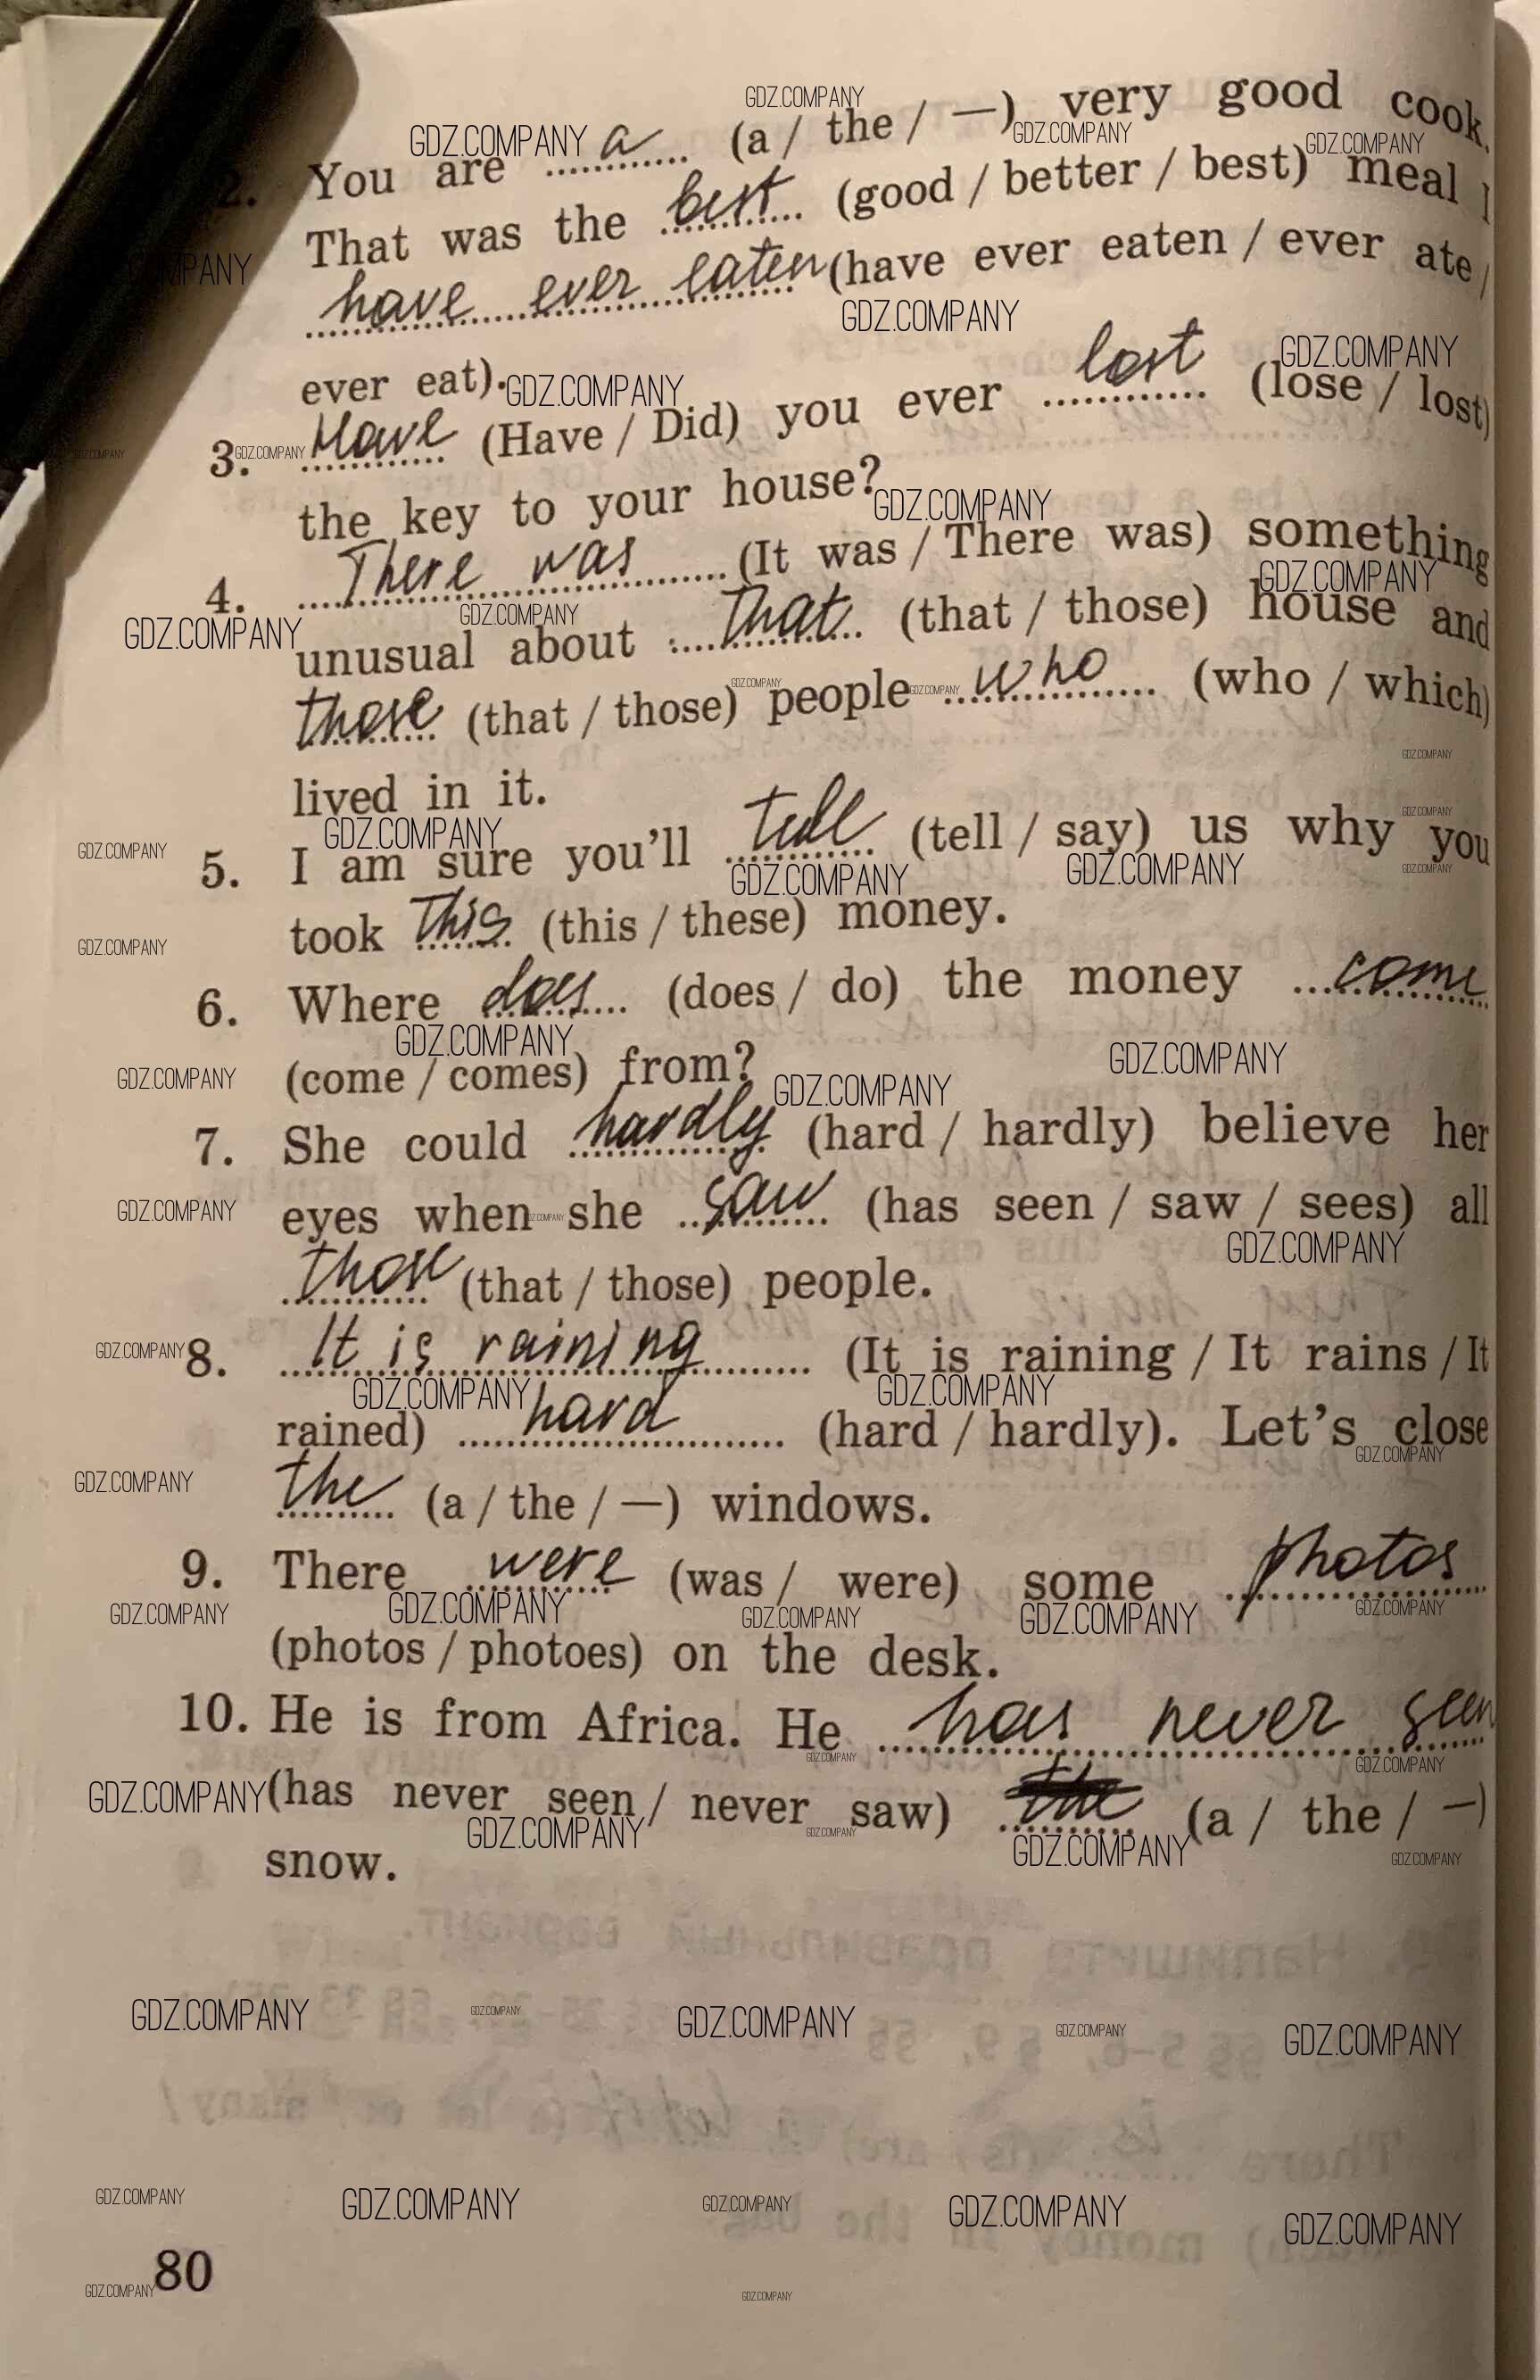 2. You are a (a / the / —) very good cook.
That was the best (good / better / best) meal I
have ever eaten (have ever eaten / ever ate /
ever eat).
3. Have (Have / Did) you ever lost (lose / lost)
the key to your house?
4. There was (It was / There was) something
unusual about that (that / those) house and
those (that / those) people who (who / which)
lived in it.
5. I am sure you'll tell (tell / say) us why you
took this (this / these) money.
6. Where does (does / do) the money come
(come / comes) from?
7. She could hardly (hard / hardly) believe her
eyes when she saw (has seen / saw / sees) all
those (that / those) people.
8. It is raining (It is raining / It rains / It
rained) hard (hard / hardly). Let's close
the (a / the / —) windows.
9. There were (was / were) some photos
(photos / photoes) on the desk.
10. He is from Africa. He has never seen
(has never seen / never saw) (a / the / —)
snow.
80
GDZ.COMPANY